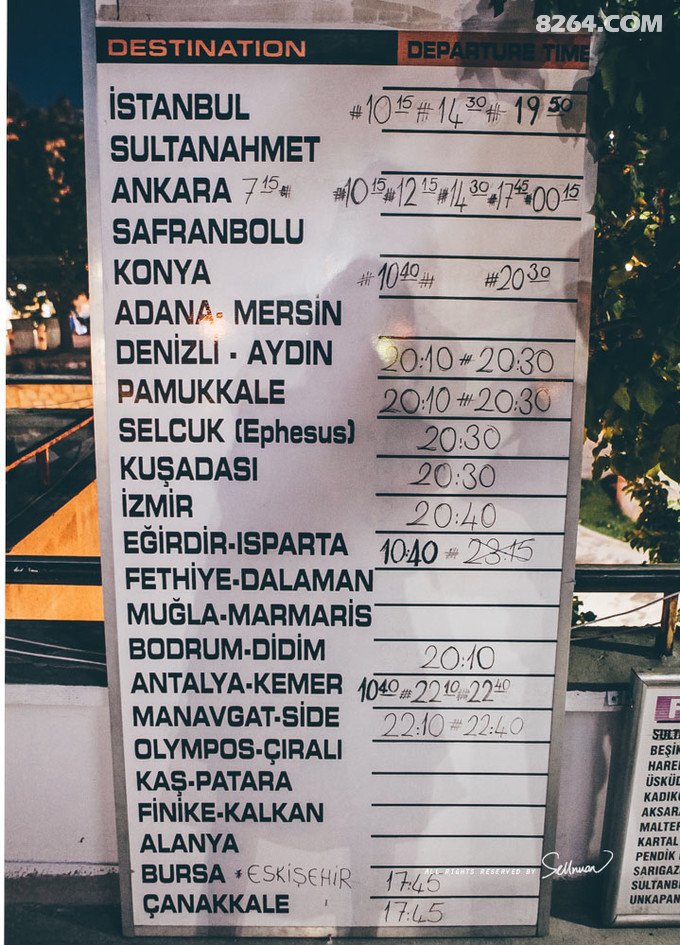 8264.COM
DESTINATION DEPARTURE TIME
İSTANBUL #10 15 # 14 30 # 19 50
SULTANAHMET
ANKARA 7 15 # #10 15 #12 15 #14 30 #17 45 #00 15
SAFRANBOLU
KONYA #10 40 # #20 30
ADANA- MERSİN
DENİZLİ - AYDIN 20:10 # 20:30
PAMUKKALE 20:10 # 20:30
SELCUK (Ephesus) 20:30
KUŞADASI 20:30
İZMİR 20:40
EĞİRDİR-ISPARTA 10:40 # 23:15
FETHİYE-DALAMAN
MUĞLA-MARMARİS
BODRUM-DİDİM 20:10
ANTALYA-KEMER 10 40 # 22 10 # 22 40
MANAVGAT-SİDE 22:10 # 22:40
OLYMPOS-ÇIRALI
KAŞ-PATARA
FİNİKE-KALKAN
ALANYA
BURSA * ESKİŞEHİR 17:45
ÇANAKKALE 17:45
ALL RIGHTS RESERVED BY
BEŞİK
HAREI
ÜSKÜD
KADIKÖ
AKSARA
MALTEP
KARTAL
PENDİK
SARIGAZ
SULTANB
UNKAPAN